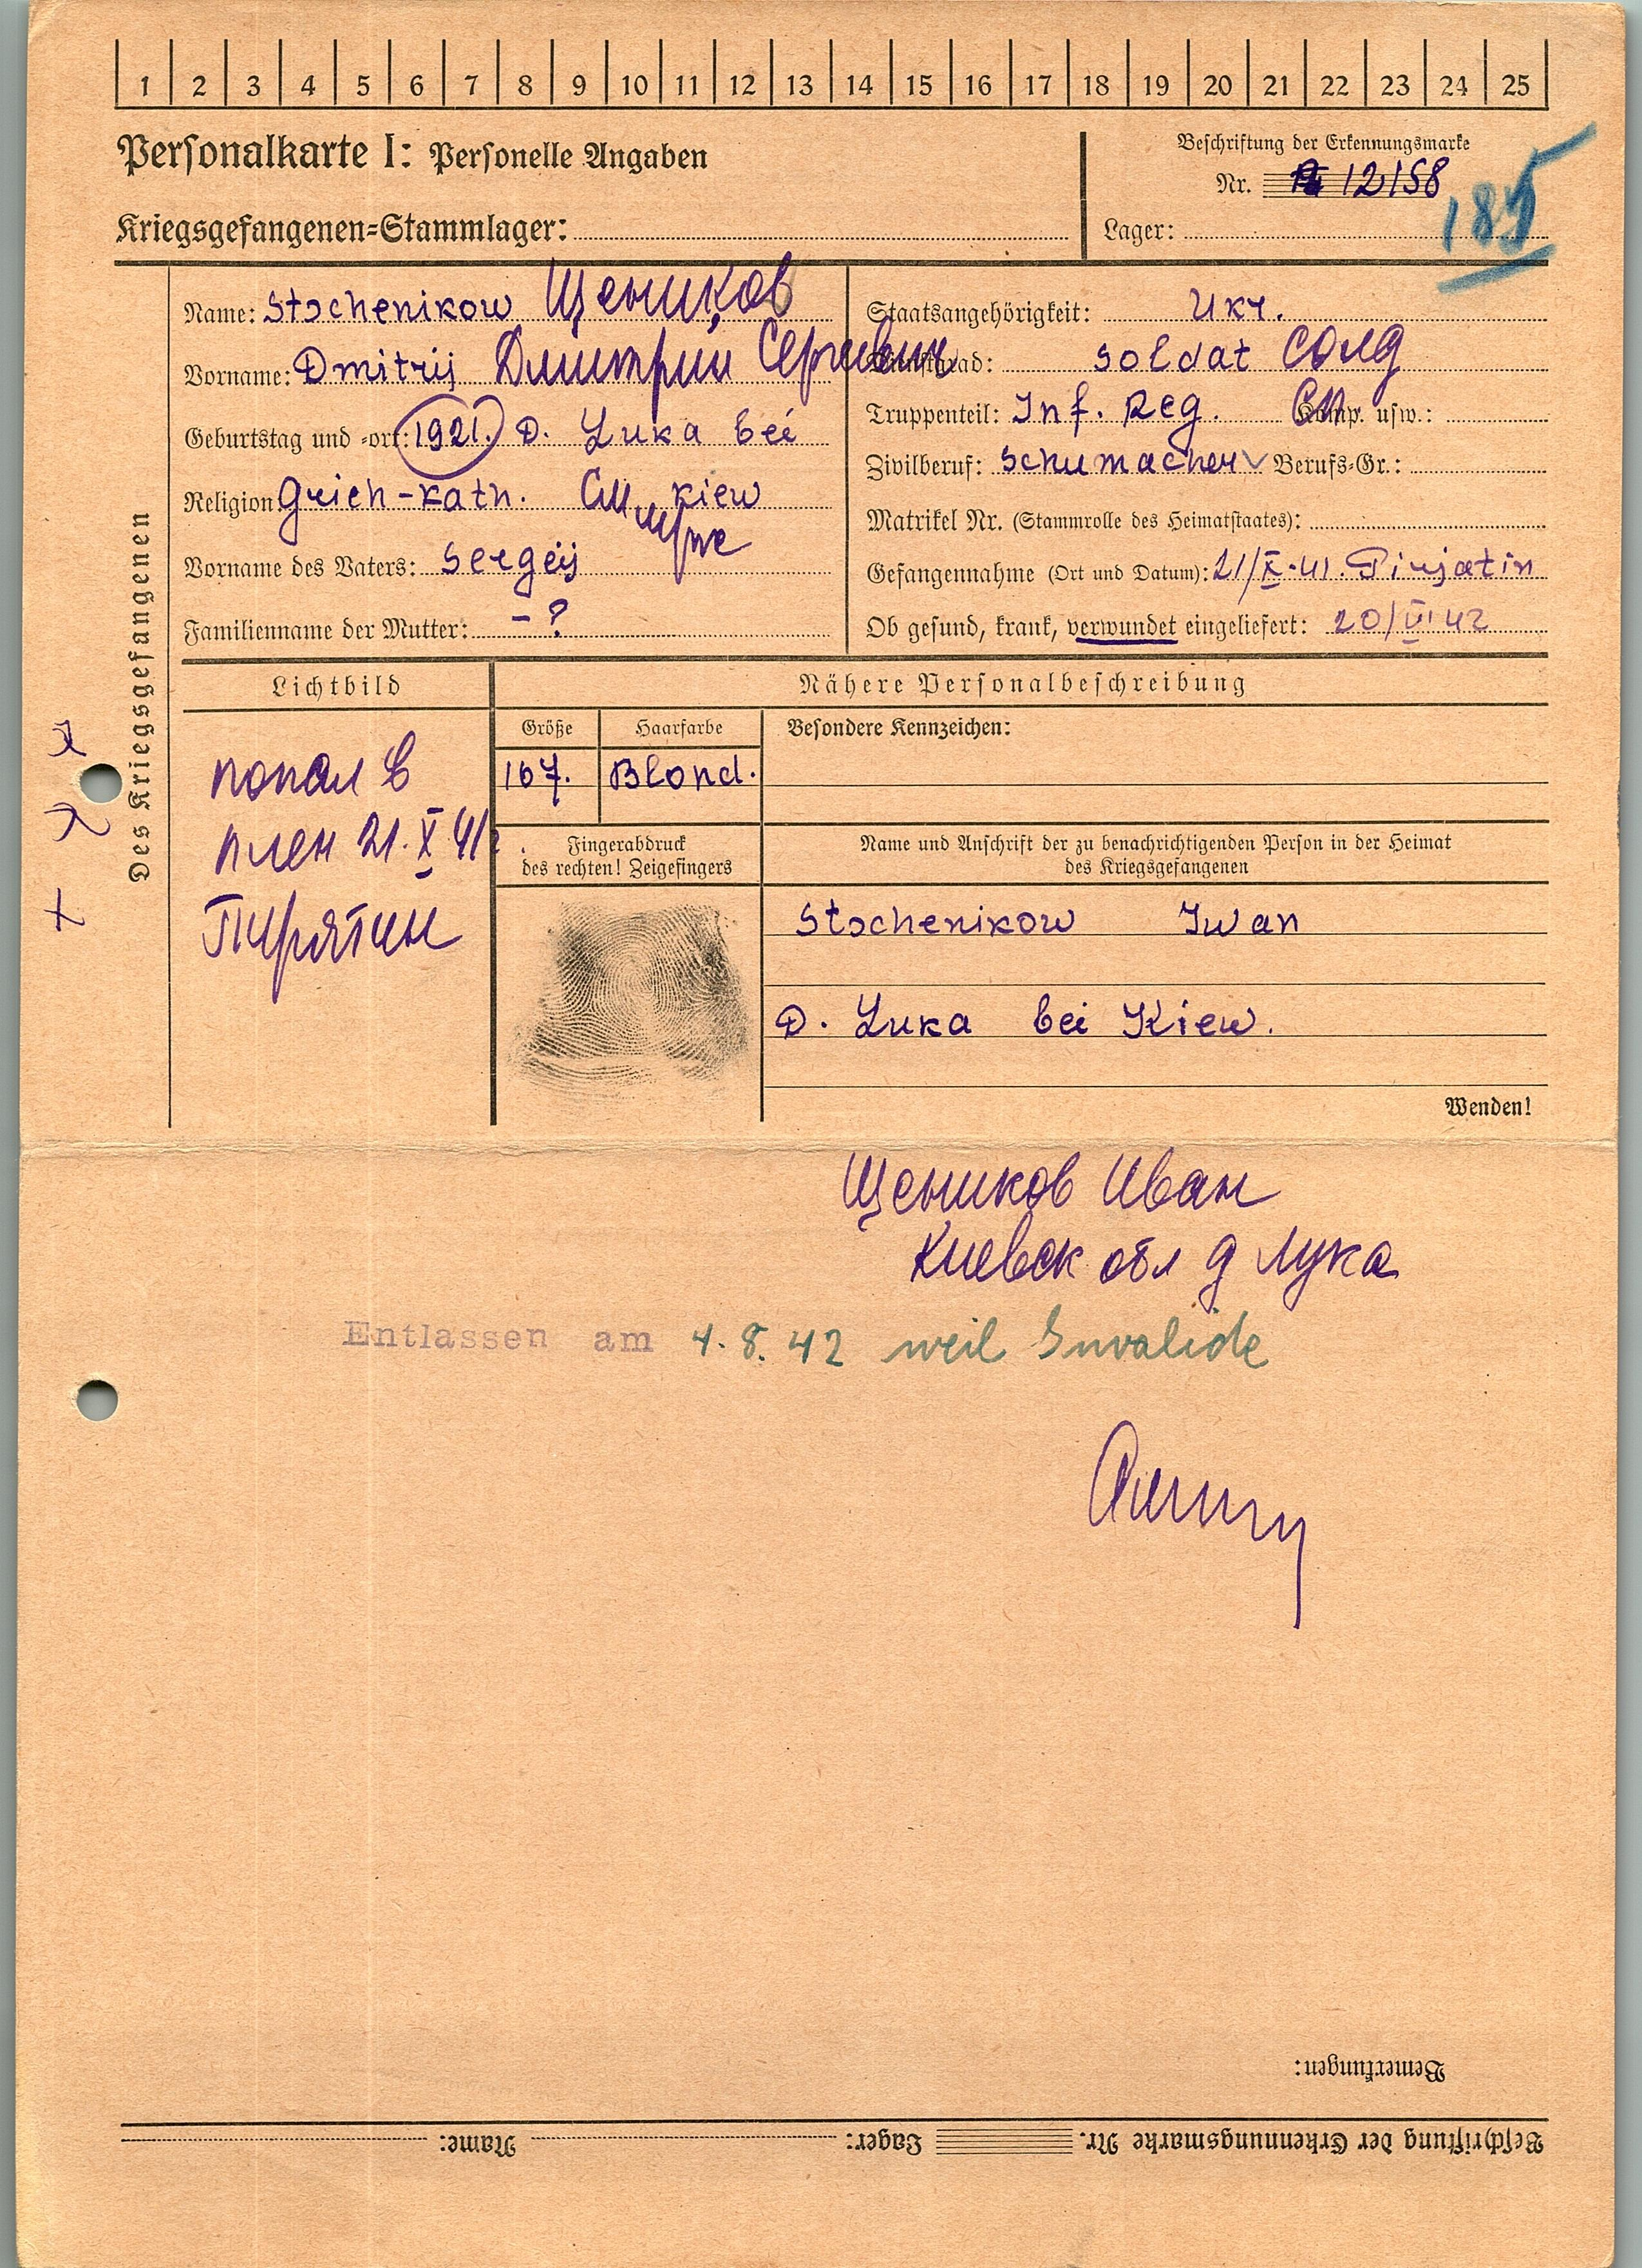 1 2 3 4 5 6 7 8 9 10 11 12 13 14 15 16 17 18 19 20 21 22 23 24 25
Personalkarte I: Personelle Angaben
Beschriftung der Erkennungsmarke
Nr. 12158
185
Kriegsgefangenen-Stammlager:
Lager:
Des Kriegsgefangenen
Name: Stschenikow Щеников
Vorname: Dmitrij Дмитрий Сергеевич
Geburtstag und -ort: 1921. D. Luka bei
Religion Grieh-kath. Kiew
Vorname des Vaters: Sergej
Familienname der Mutter: - ?
Staatsangehörigkeit: Ukr.
Dienstgrad: Soldat Солд
Truppenteil: Inf. Reg. СП Komp. usw.:
Zivilberuf: Schumacher Berufs-Gr.:
Matrikel Nr. (Stammrolle des Heimatstaates):
Gefangennahme (Ort und Datum): 21/X.41. Pirjatin
Ob gesund, krank, verwundet eingeliefert: 20/VI 42
Lichtbild
попал в
плен 21.X 41
Пирятин
Nähere Personalbeschreibung
Größe Haarfarbe Besondere Kennzeichen:
167. Blond.
Fingerabdruck
des rechten! Zeigefingers
Name und Anschrift der zu benachrichtigenden Person in der Heimat
des Kriegsgefangenen
Stschenikow Iwan
D. Luka bei Kiew.
Wenden!
Щеников Иван
Киевск обл д Лука
Entlassen am 4.8.42 weil Invalide
Bemerkungen:
Beschriftung der Erkennungsmarke Nr. Lager: Name: